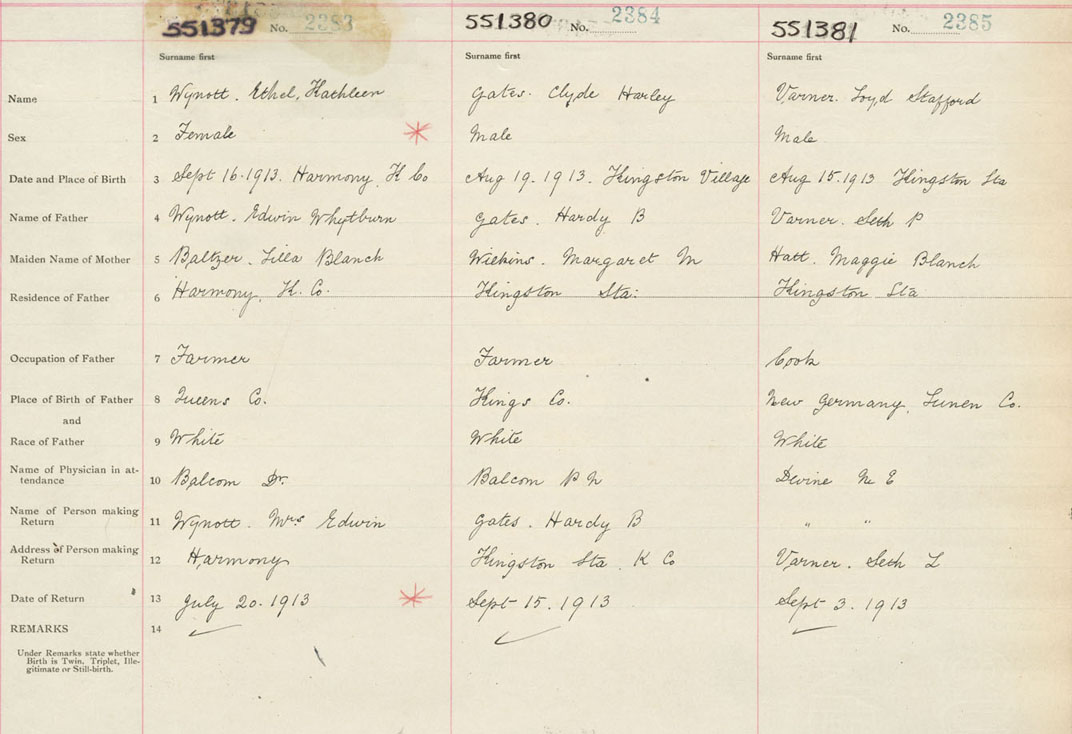 551379 No. 2383 551380 No. 2384 551381 No. 2385
Surname first Surname first Surname first
Name 1 Wynott. Ethel, Kathleen Gates. Clyde Harley Varner. Loyd Stafford
Sex 2 Female Male Male
Date and Place of Birth 3 Sept 16. 1913. Harmony. K Co Aug 19. 1913. Kingston Village Aug 15. 1913 Kingston Sta
Name of Father 4 Wynott. Edwin Whytburn Gates. Hardy B Varner. Seth P
Maiden Name of Mother 5 Baltzer. Lilla Blanch Wilkins. Margaret M Hatt. Maggie Blanch
Residence of Father 6 Harmony, K. Co. Kingston Sta. Kingston Sta
Occupation of Father 7 Farmer Farmer Cook
Place of Birth of Father 8 Queens Co. Kings Co. New Germany, Lunen Co.
and
Race of Father 9 White White White
Name of Physician in at-
tendance 10 Balcom Dr. Balcom P N Devine M E
Name of Person making
Return 11 Wynott. Mrs Edwin Gates. Hardy B " "
Address of Person making
Return 12 Harmony Kingston Sta. K Co Varner. Seth L
Date of Return 13 July 20. 1913 Sept 15. 1913 Sept 3. 1913
REMARKS 14
Under Remarks state whether
Birth is Twin, Triplet, Ille-
gitimate or Still-birth.